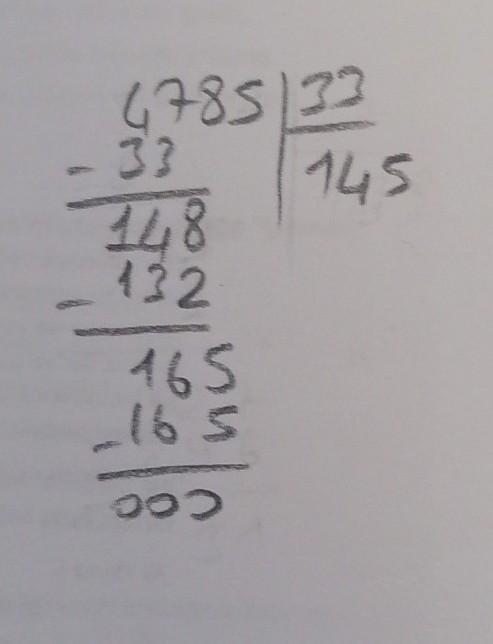 4785 33
- 33 145
148
- 132
165
-165
000